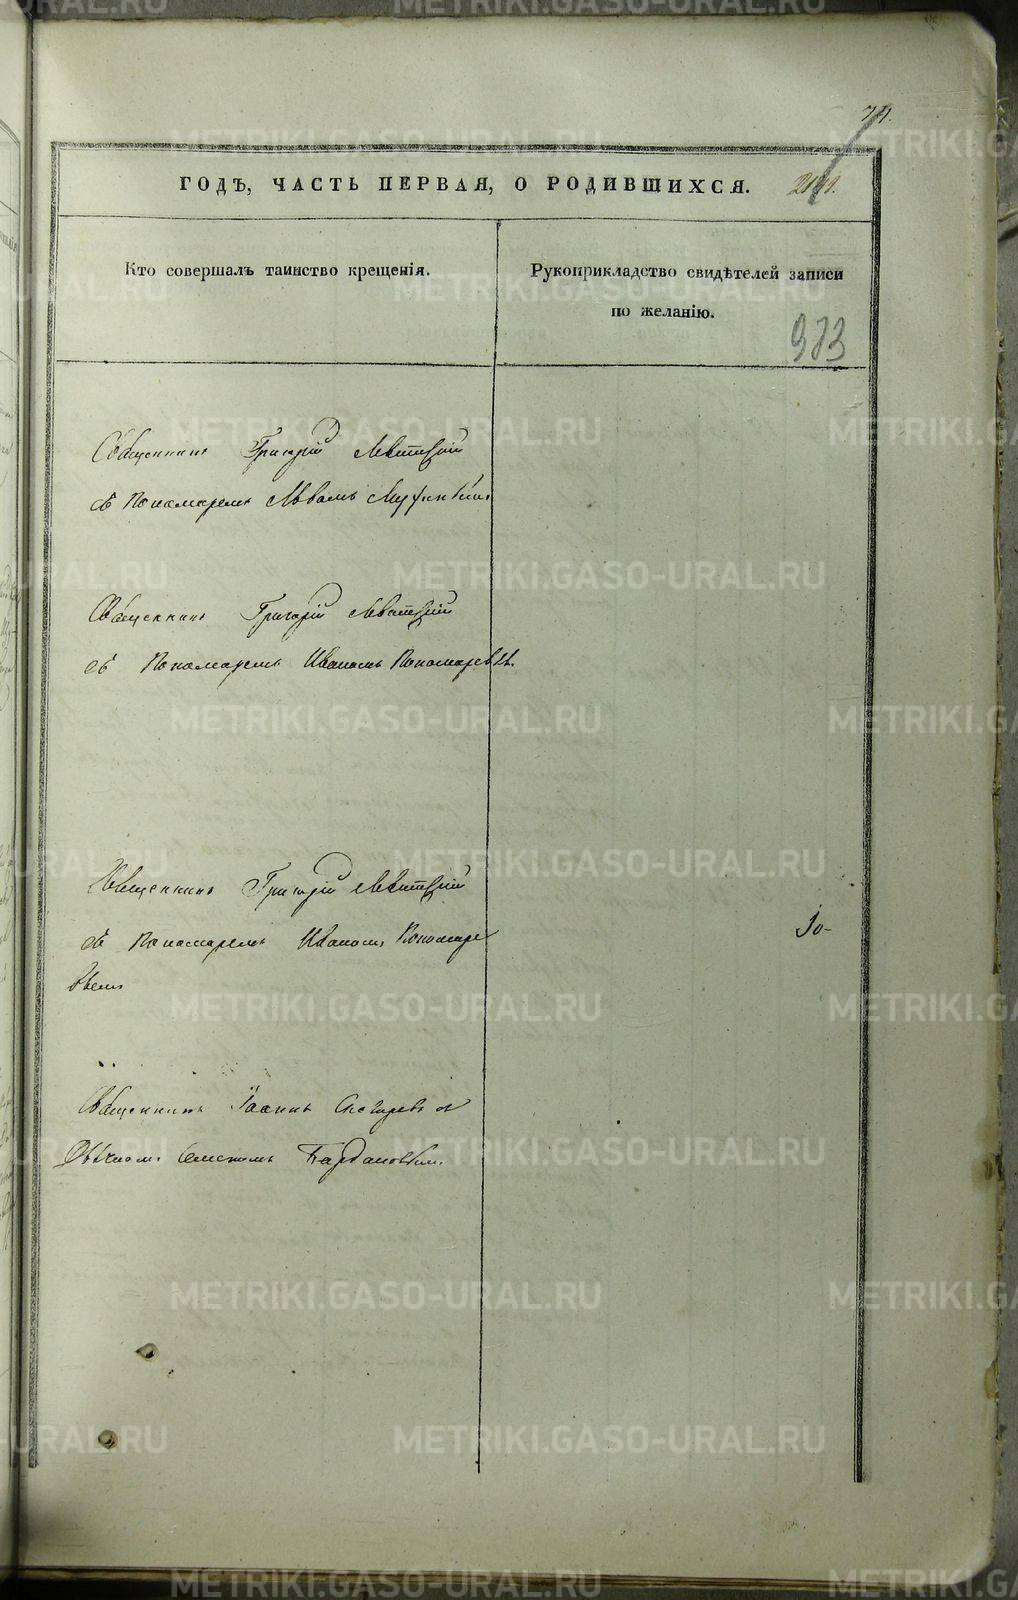 74.
ГОДЪ, ЧАСТЬ ПЕРВАЯ, О РОДИВШИХСЯ.
Кто совершалъ таинство крещенія.
Рукоприкладство свидѣтелей записи
по желанію.
973
Священникъ Григорій Левитскій
съ Пономаремъ Львомъ
Священникъ Григорій Левитскій
съ Пономаремъ Иваномъ Пономаревы.
Священникъ Григорій Левитскій
съ Пономаремъ Иваномъ Пономаре
вымъ
10-
Священникъ Іоаннъ съ
Семеномъ
METRIKI.GASO-URAL.RU